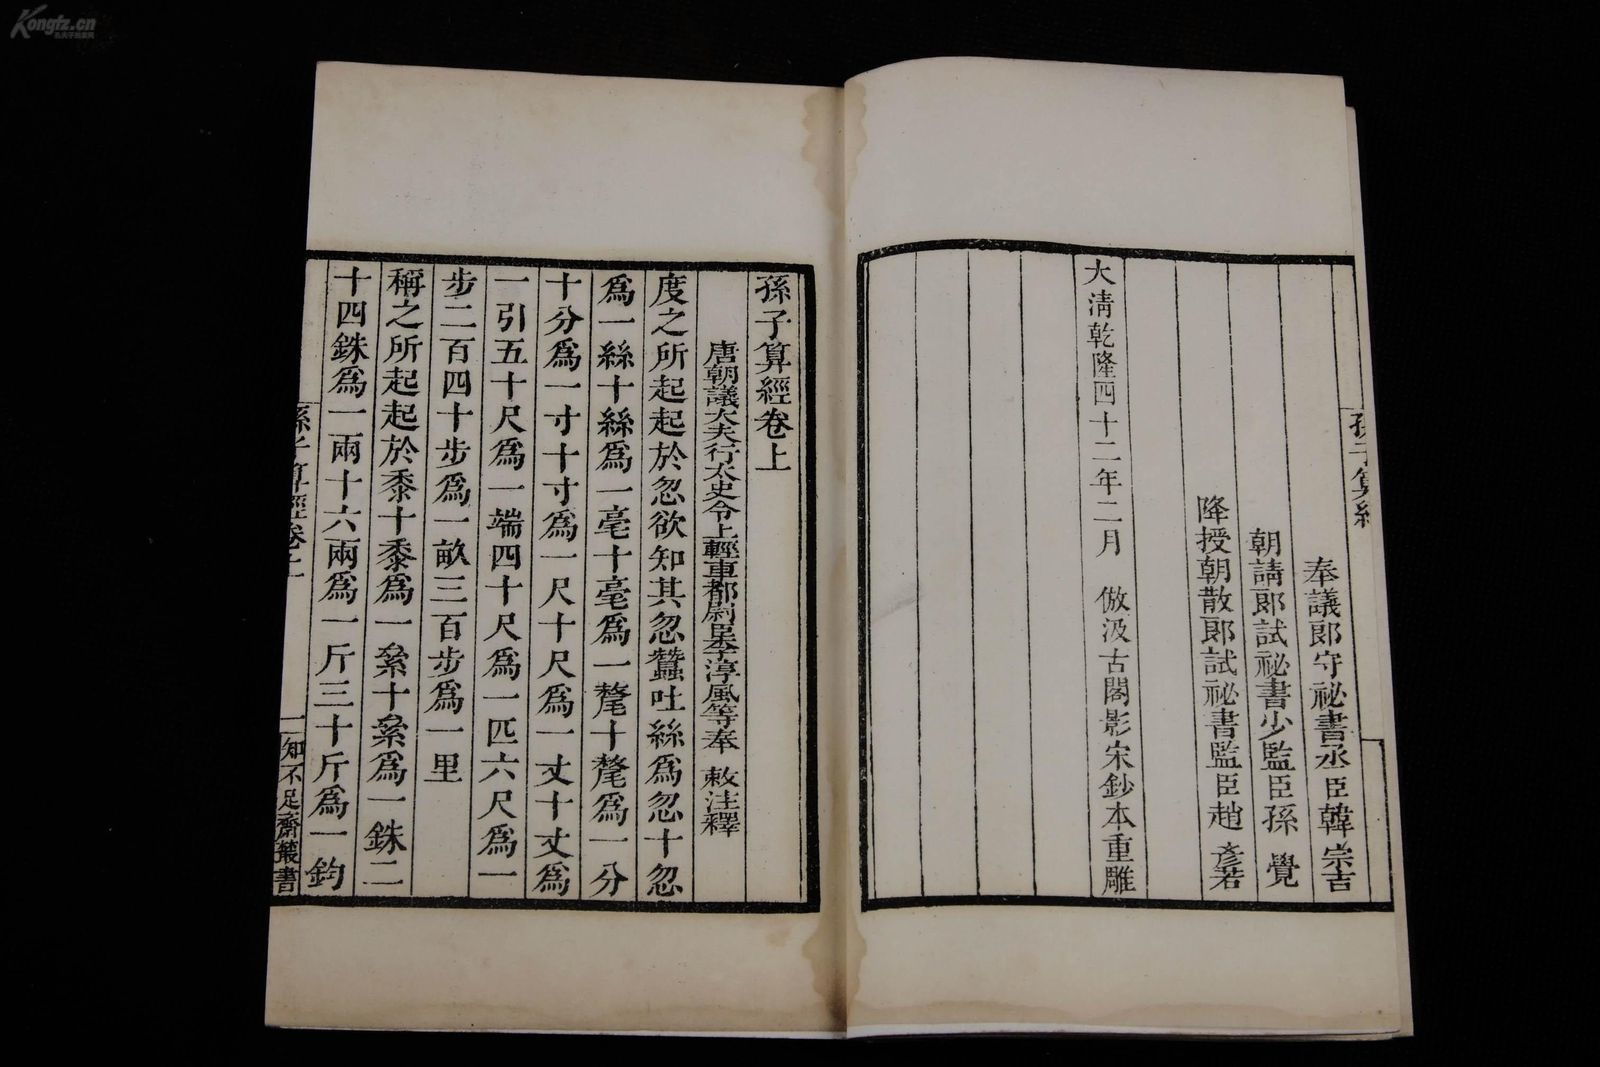 Kongfz.cn
孫子算經
奉議郎守祕書丞臣韓宗吉
朝請郎試祕書少監臣孫 覺
降授朝散郎試祕書監臣趙 彥若
大清乾隆四十二年二月 倣汲古閣影宋鈔本重雕
孫子算經卷上
唐朝議大夫行太史令上輕車都尉臣李淳風等奉 敕注釋
度之所起起於忽欲知其忽蠶吐絲為忽十忽
為一絲十絲為一毫十毫為一氂十氂為一分
十分為一寸十寸為一尺十尺為一丈十丈為
一引五十尺為一端四十尺為一匹六尺為一
步二百四十步為一畝三百步為一里
稱之所起起於黍十黍為一絫十絫為一銖二
十四銖為一兩十六兩為一斤三十斤為一鈞
孫子算經卷上
一 知不足齋叢書